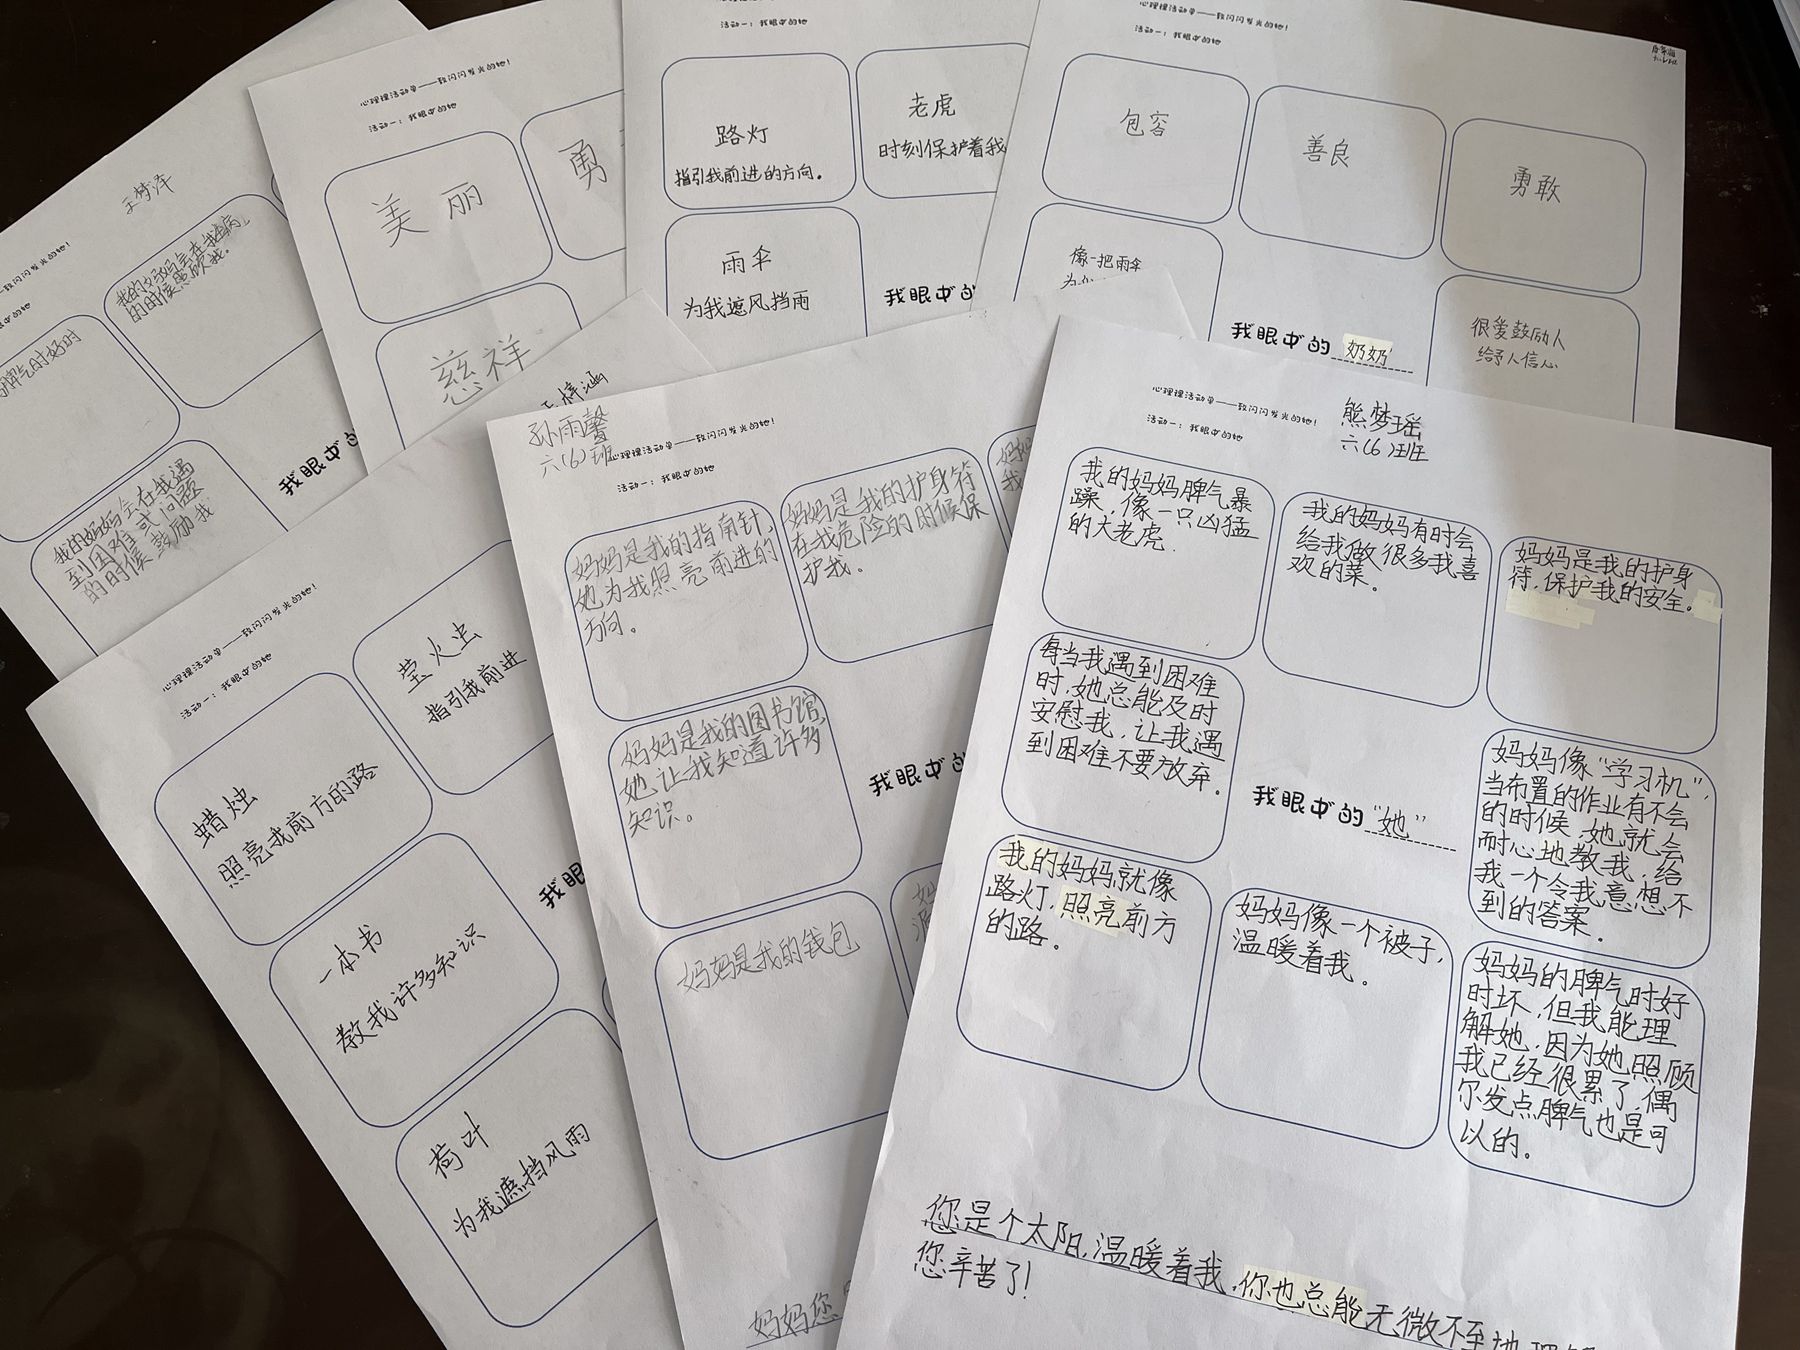 王梦泽
发光的她！
眼中的她
脾气时好时
我的妈妈会在我生病
的时候照顾我。
我的妈妈会在我遇
到困难或问题
的时候鼓励我
我眼中的
心理课活动单——致闪闪发光的她！
活动一：我眼中的她
美丽
勇
慈祥
活动一：我眼中的她
路灯
指引我前进的方向。
老虎
时刻保护着我
雨伞
为我遮风挡雨
我眼中的
心理课活动单——致闪闪发光的她！
活动一：我眼中的她
包容
善良
勇敢
像一把雨伞
我眼中的 奶奶
很爱鼓励人
给予人信心
梓涵
心理课活动单——致闪闪发光的她！
活动一：我眼中的她
蜡烛
照亮我前方的路
萤火虫
指引我前进
一本书
教我许多知识
我眼
荷叶
为我遮挡风雨
孙雨馨
六(6)班
心理课活动单——致闪闪发光的她！
活动一：我眼中的她
妈妈是我的指南针，
她为我照亮前进的
方向。
妈妈是我的护身符
在我危险的时候保
护我。
妈妈
我
妈妈是我的图书馆，
她让我知道许多
知识。
我眼中的
妈妈是我的钱包
妈妈您
熊梦瑶
六(6)班
心理课活动单——致闪闪发光的她！
活动一：我眼中的她
我的妈妈脾气暴
躁，像一只凶猛
的大老虎.
我的妈妈有时会
给我做很多我喜
欢的菜。
妈妈是我的护身
符，保护我的安全。
每当我遇到困难
时，她总能及时
安慰我，让我遇
到困难不要放弃.
我眼中的 “她”
妈妈像“学习机”，
当布置的作业有不会
的时候，她就会
耐心地教我，给
我一个令我意想不
到的答案.
我的妈妈就像
路灯，照亮前方
的路.
妈妈像一个被子，
温暖着我.
妈妈的脾气时好
时坏，但我能理
解她，因为她照顾
我已经很累了，偶
尔发点脾气也是可
以的。
您是个太阳，温暖着我，你也总能无微不至地
您辛苦了！